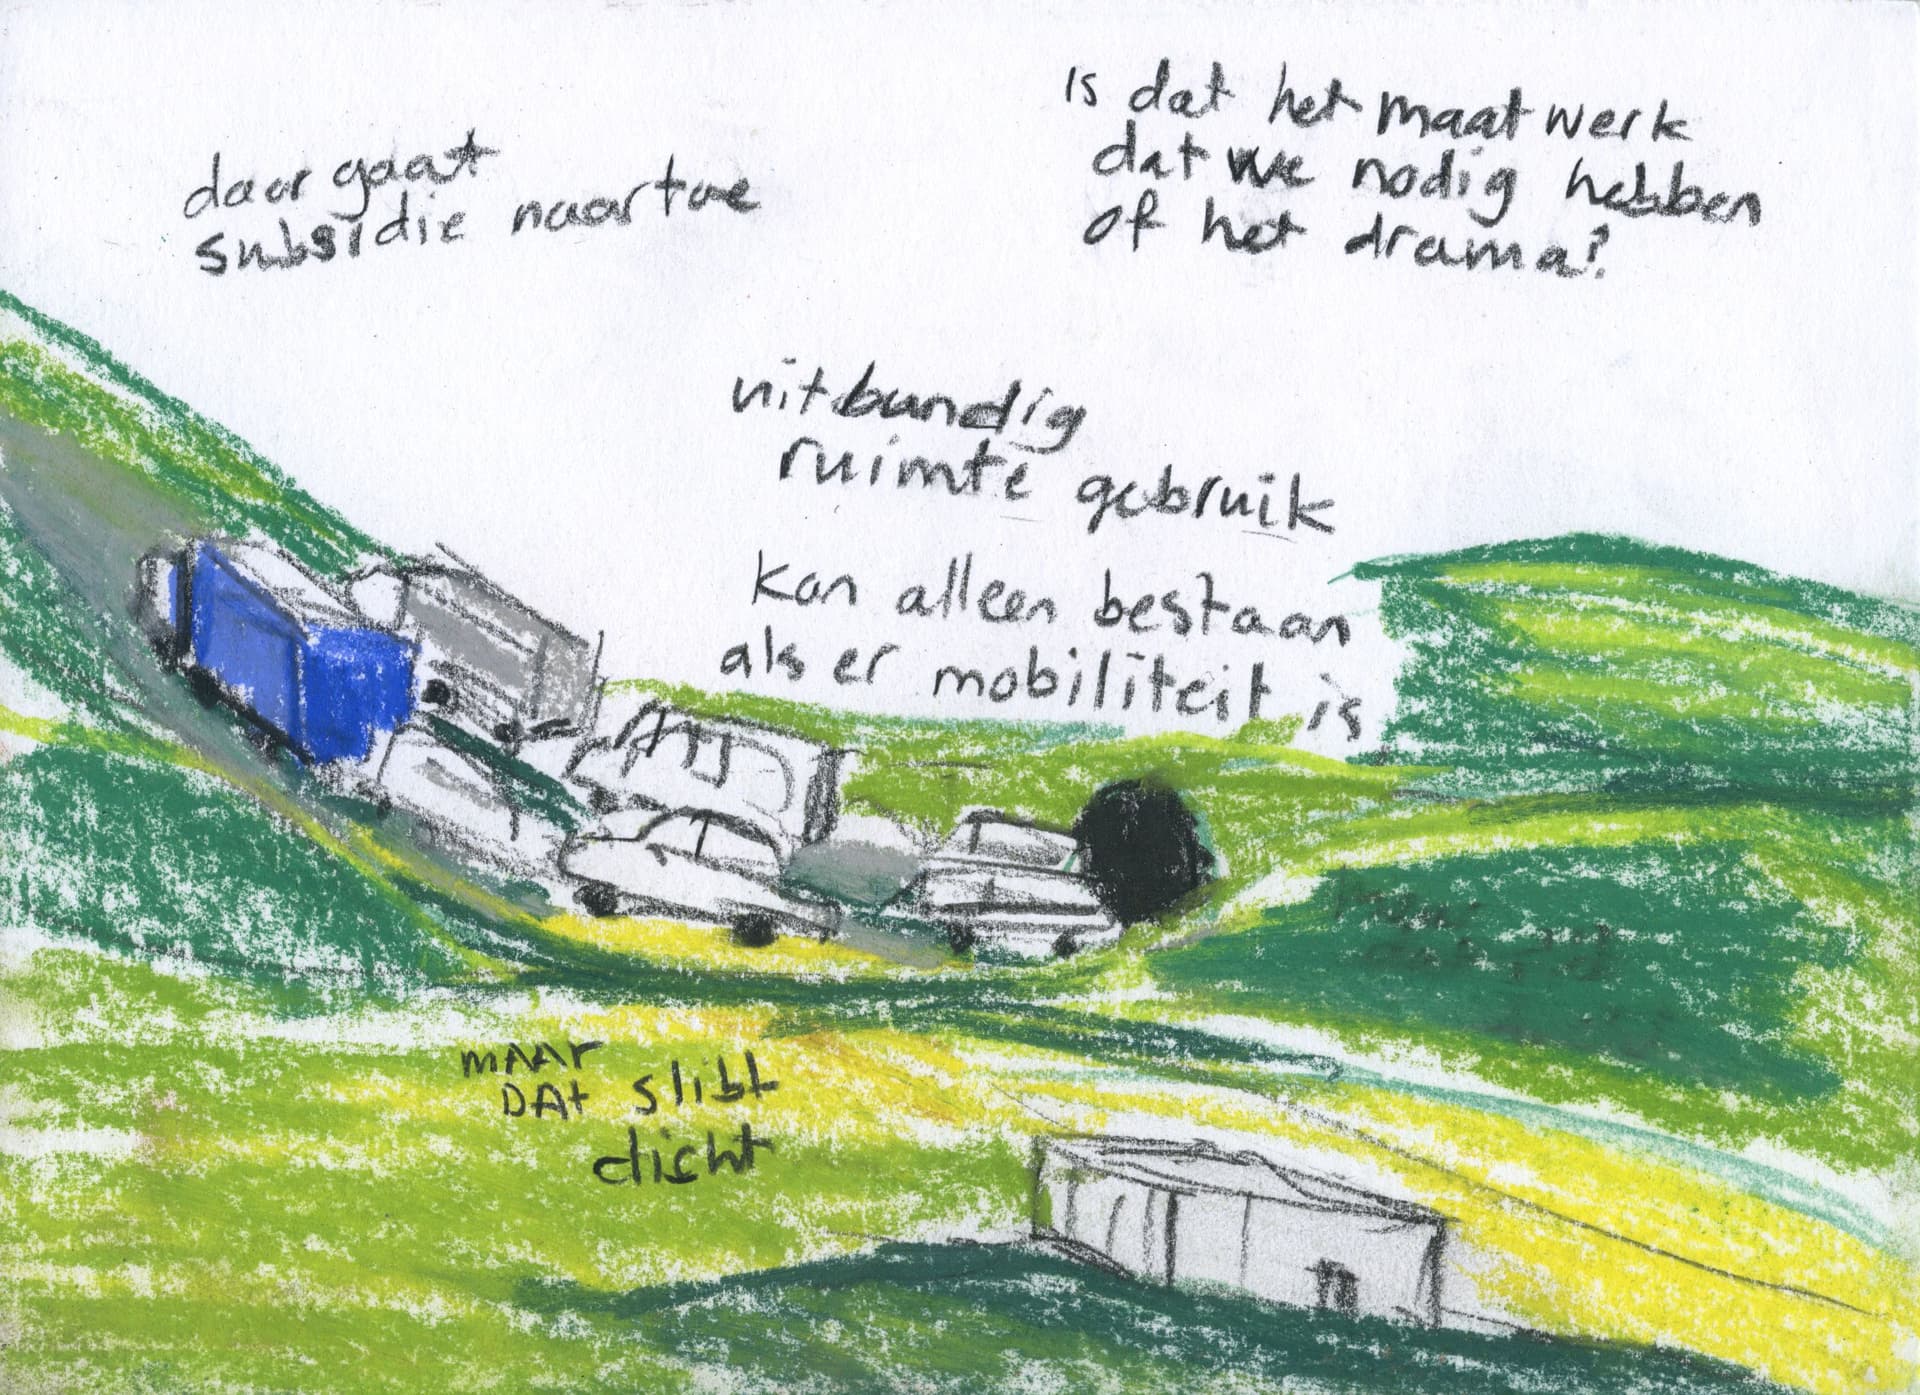 daar gaat
subsidie naartoe
is dat het maatwerk
dat we nodig hebben
of het drama?
uitbundig
ruimte gebruik
kan alleen bestaan
als er mobiliteit is
MAAR
DAt slibt
dicht